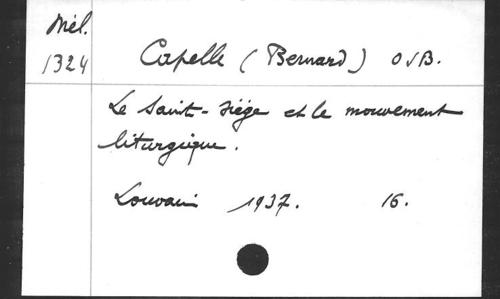 Mél.
1324
Capelle (Bernard) OSB.
Le Saint-Siège et le mouvement
liturgique.
Louvain 1937. 16.